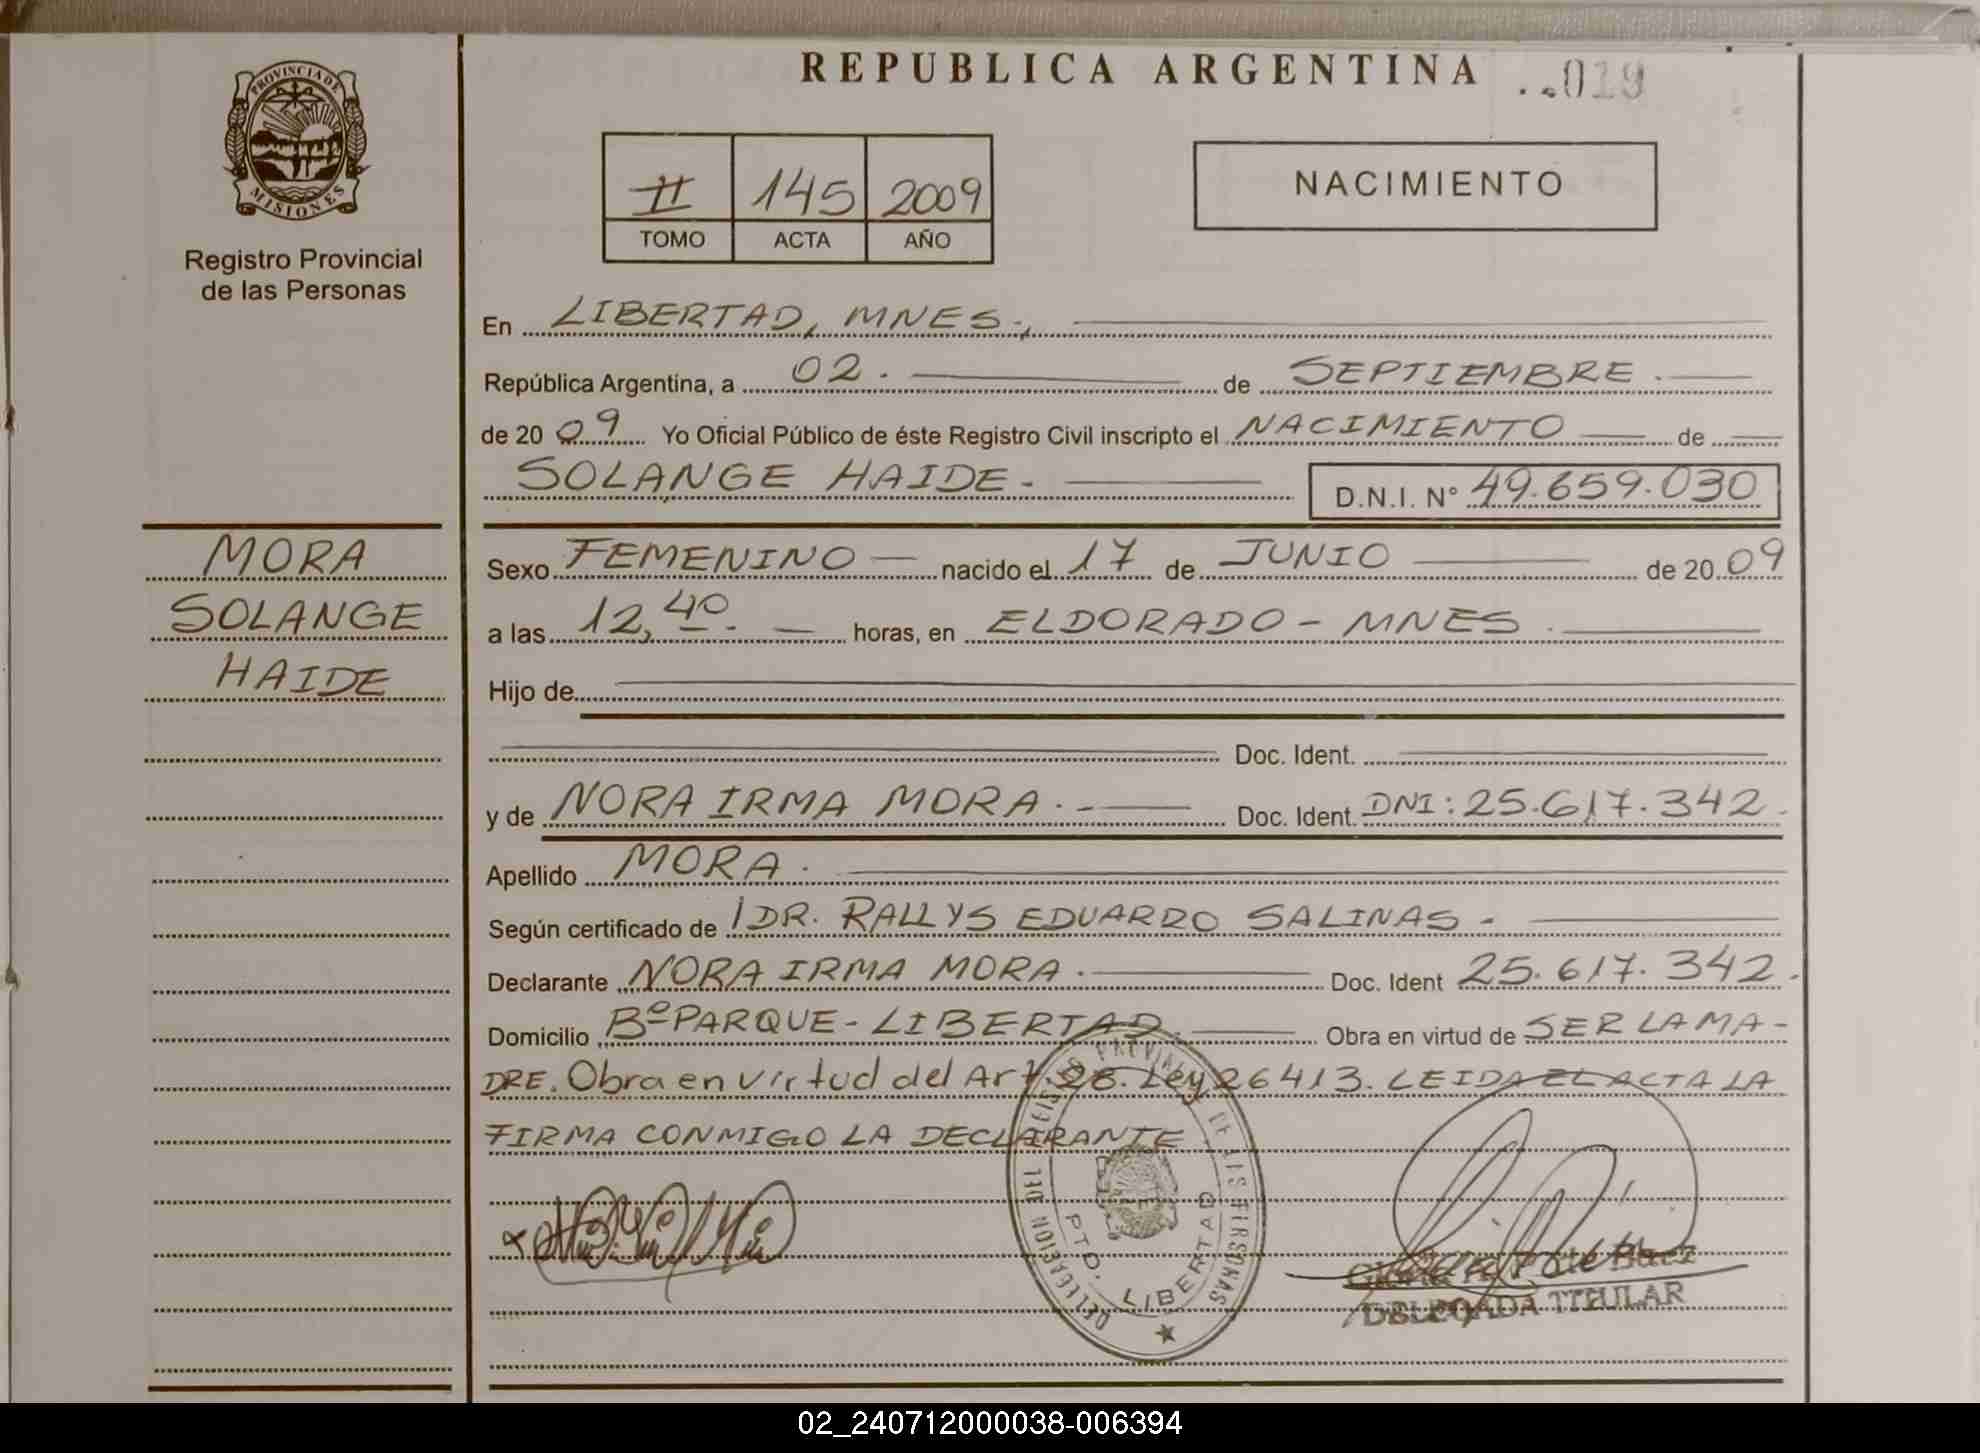 REPUBLICA ARGENTINA ..019
PROVINCIA DE
MISIONES
Registro Provincial
de las Personas
II 145 2009
TOMO ACTA AÑO
NACIMIENTO
En LIBERTAD, MNES.,
República Argentina, a 02. de SEPTIEMBRE.
de 20 09 Yo Oficial Público de éste Registro Civil inscripto el NACIMIENTO de
SOLANGE HAIDE. D.N.I. N° 49.659.030
MORA
SOLANGE
HAIDE
Sexo FEMENINO nacido el 17 de JUNIO de 20 09
a las 12,40. horas, en ELDORADO - MNES.
Hijo de
Doc. Ident.
y de NORA IRMA MORA.- Doc. Ident. DNI: 25.617.342.
Apellido MORA.
Según certificado de DR. RALLYS EDUARDO SALINAS.
Declarante NORA IRMA MORA. Doc. Ident 25.617.342.
Domicilio Bº PARQUE - LIBERTAD. Obra en virtud de SER LA MA-
DRE. Obra en virtud del Art. 28. Ley 26413. LEIDA EL ACTA LA
FIRMA CONMIGO LA DECLARANTE
DELEGACION DEL REGISTRO PROVINCIAL DE LAS PERSONAS
PTO. LIBERTAD
de Baez
DELEGADA TITULAR
02_240712000038-006394